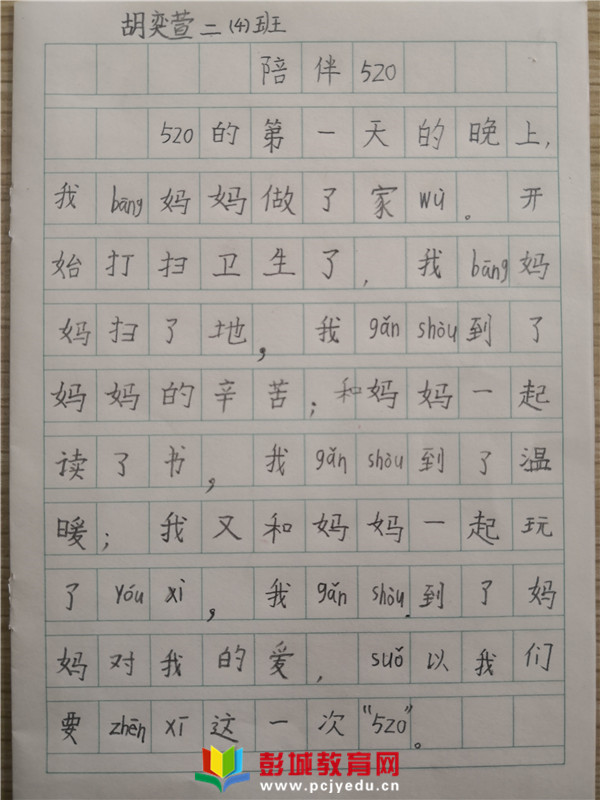 胡奕萱二(4)班
陪伴520
520的第一天的晚上,
我bāng妈妈做了家wù。开
始打扫卫生了,我bāng妈
妈扫了地,我gǎn shòu到了
妈妈的辛苦;和妈妈一起
读了书,我gǎn shòu到了温
暖;我又和妈妈一起玩
了yóu xì,我gǎn shòu到了妈
妈对我的爱,suǒ以我们
要zhēn xī这一次"520"。
彭城教育网
www.pcjyedu.cn